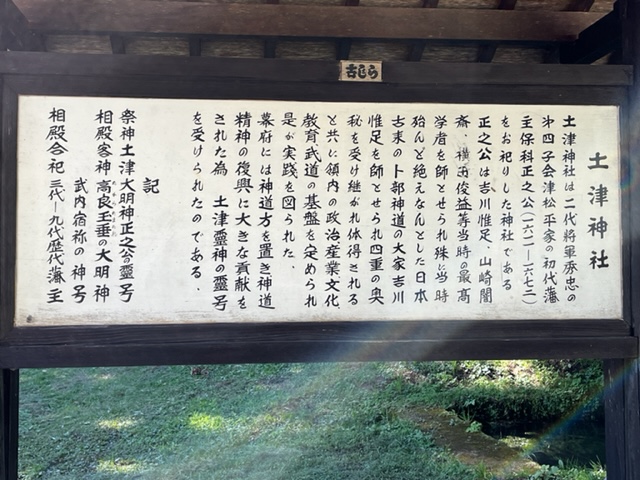 古志ら
土津神社
土津神社は二代将軍秀忠の
第四子会津松平家の初代藩
主保科正之公(一六一一―一六七二)
をお祀りした神社である
正之公は吉川惟足、山崎闇
斎、横田俊益等当時の最高
学者を師とせられ殊に当時
殆んど絶えなんとした日本
古来の卜部神道の大家吉川
惟足を師とせられ四重の奥
秘を受け継がれ体得される
と共に領内の政治産業文化
教育武道の基盤を定められ
是が実践を図られた
幕府には神道方を置き神道
精神の復興に大きな貢献を
された為 土津霊神の霊号
を受けられたのである.
記
祭神土津大明神正之公の霊号
相殿客神 高良玉垂の大明神
武内宿祢の神号
相殿合祀 三代~九代歴代藩主